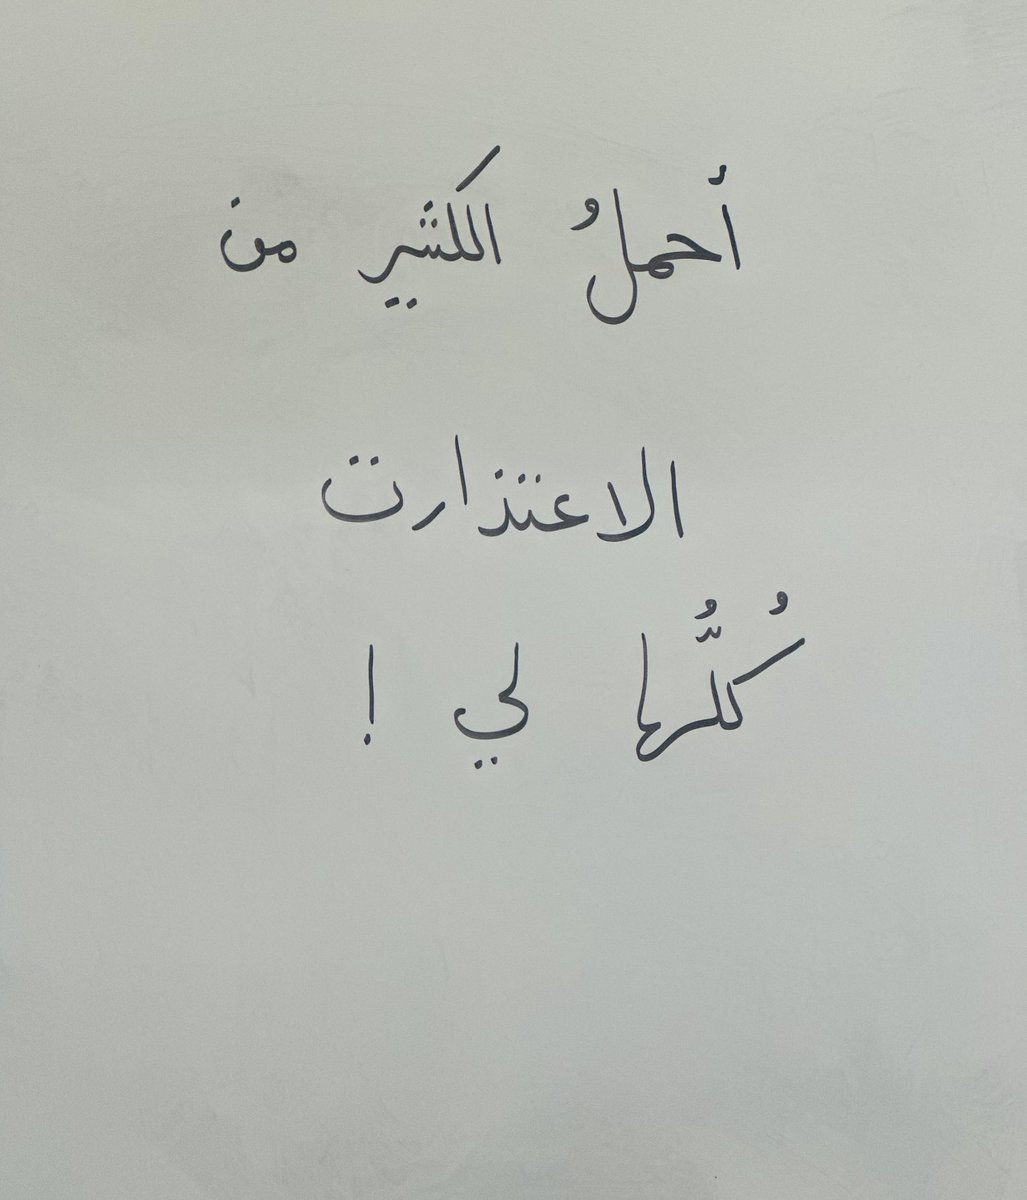 أحملُ الكثير من
الاعتذارت
كُلُّها لي !